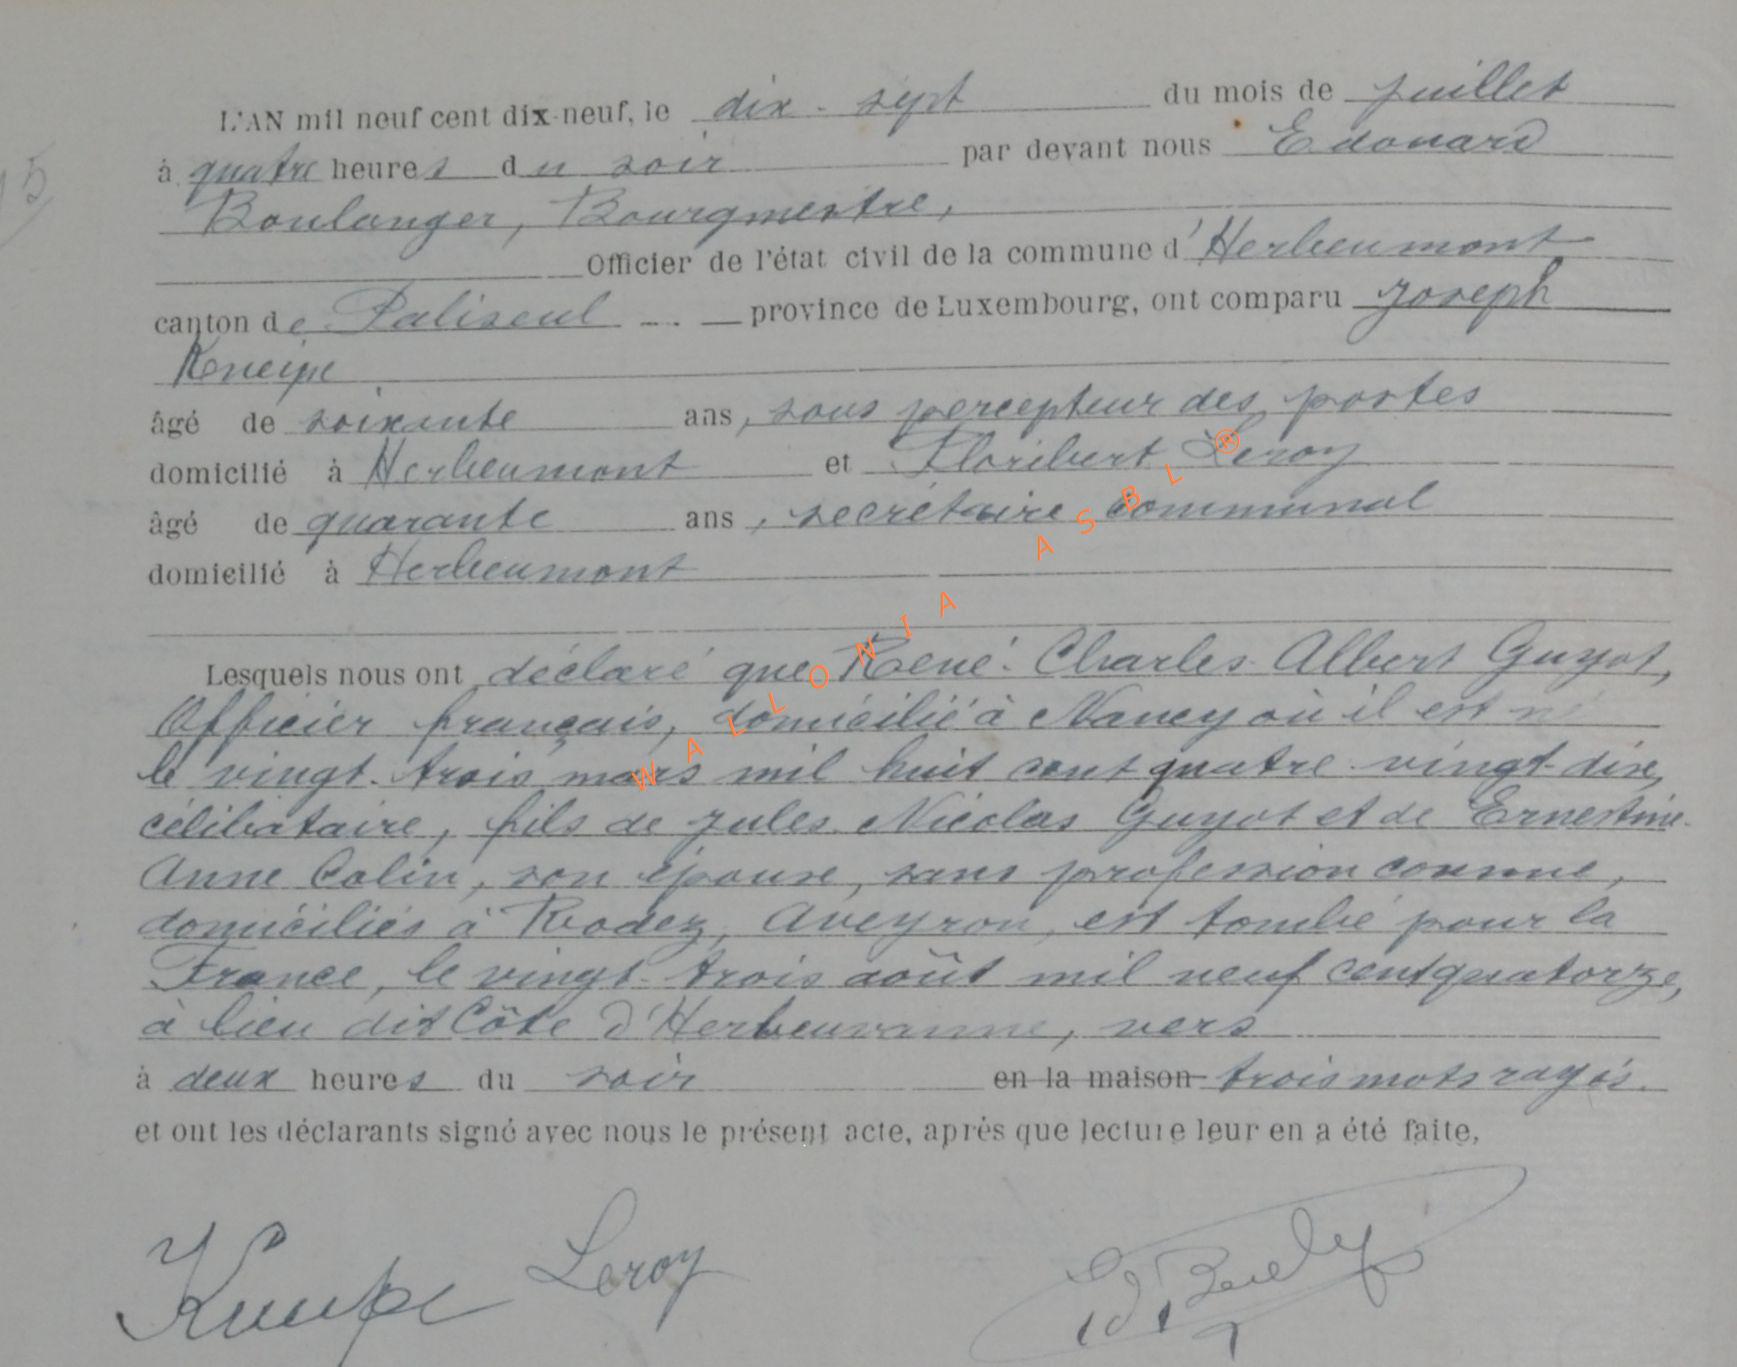 L'AN mil neuf cent dix-neuf, le dix-sept du mois de juillet
à quatre heures du soir par devant nous Edouard
Boulanger, Bourgmestre,
Officier de l'état civil de la commune d'Herbeumont
canton de Paliseul province de Luxembourg, ont comparu Joseph
Kneipe
âgé de soixante ans, sous percepteur des postes
domicilié à Herbeumont et Floribert Leroy
âgé de quarante ans, secrétaire communal
domicilié à Herbeumont
Lesquels nous ont déclaré que René-Charles-Albert Guyot,
Officier français, domicilié à Nancy où il est né
le vingt-trois mars mil huit cent quatre-vingt-dix,
célibataire, fils de Jules Nicolas Guyot et de Ernestine
Anne Colin, son épouse, sans profession connue,
domiciliés à Rodez, Aveyron, est tombé pour la
France, le vingt-trois août mil neuf cent quatorze,
à lieu dit Côte d'Herbeuvanne, vers
à deux heures du soir en la maison trois mots rayés.
et ont les déclarants signé avec nous le présent acte, après que lecture leur en a été faite,
Leroy
WALLONIA ASBL ®